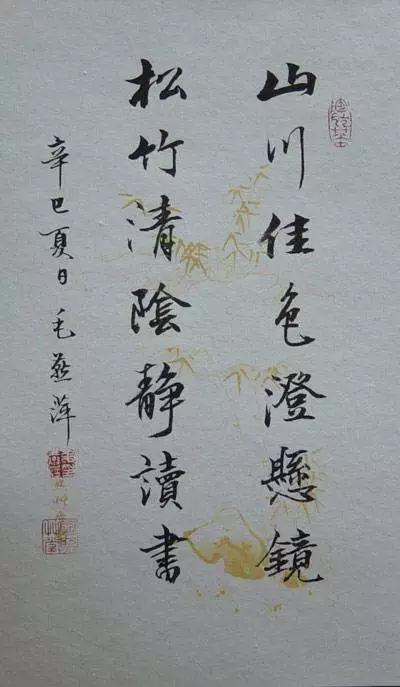 山川佳色澄懸鏡
松竹清陰靜讀書
辛巳夏日毛燕萍